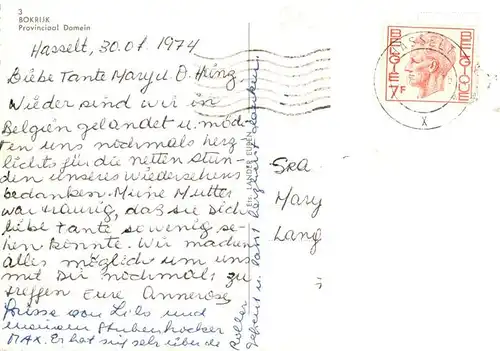 3
BOKRIJK
Provinciaal Domein
Hasselt, 30.07. 1974
Liebe Tante Mary u. O. Heinz.
Wieder sind wir in
Belgien gelandet u. möch-
ten uns nochmals herz
lichst für die netten Stun-
den unseres Wiedersehens
bedanken. Meine Mutter
war traurig, daß sie Dich
liebe Tante so wenig se-
hen konnte. Wir machen
alles möglich um uns
mit Dir nochmals zu
treffen Eure Annerose
Grüsse von Lilo und
meinem Stubenhocker
MAX. Er hat sich sehr über die
Roller
gefreut u. lässt herzlichst danken.
Eh. LANDER EUPEN
BELGIE 7F BELGIQUE
HASSELT
X
SRA
Mary
Lang